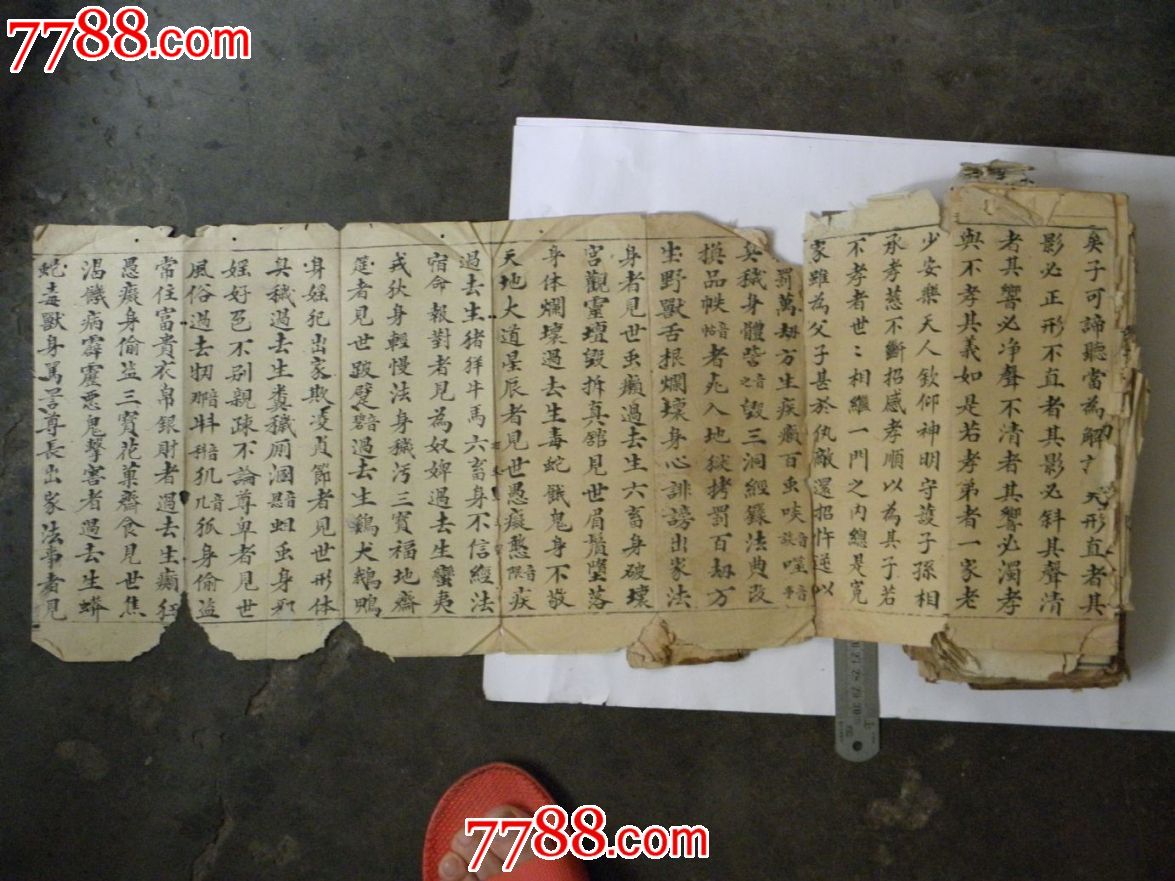 7788.com
矣子可諦聽當為解 天形直者其
影必正形不直者其影必斜其聲清
者其響必净聲不清者其響必濁孝
與不孝其義如是若孝弟者一家老
少安樂天人欽仰神明守護子孫相
承孝慈不斷招感孝順以為其子若
不孝者世〻相継一門之内緫是寃
家雖為父子甚於仇敵還招忤逆以
罰萬劫方生疾癩百虫啖音談噬音
臭穢身體訾音之毁三洞經籙法典改
換品帙音者死入地獄拷罰百劫方
生野獸舌根爛壞身心誹謗出家法
身者見世虫癩過去生六畜身破壞
宫觀靈壇毀拆真舘見世眉鬚墮落
身体爛壞過去生毒蛇餓鬼身不敬
天地大道星辰者見世愚癡憨音疾
過去生猪羊牛馬六畜身不信經法
宿命報對者見為奴婢過去生蠻夷
戎狄身輕慢法身穢污三寳福地齋
筵者見世跛躄音過去生鷄犬鵝鴨
身婬犯出家欺凌貞節者見世形体
臭穢過去生糞穢厠溷音蛆虫身
婬好色不别親疎不論尊卑者見世
風俗過去音音音狐身偷盗
常住富貴衣帛銀財者過去生癩
愚癡身偷盗三寳花菓齋食見世焦
渇饑病霹靂惡鬼擊害者過去生蟒
蛇毒獸身罵詈尊長出家法事者見
7788.com